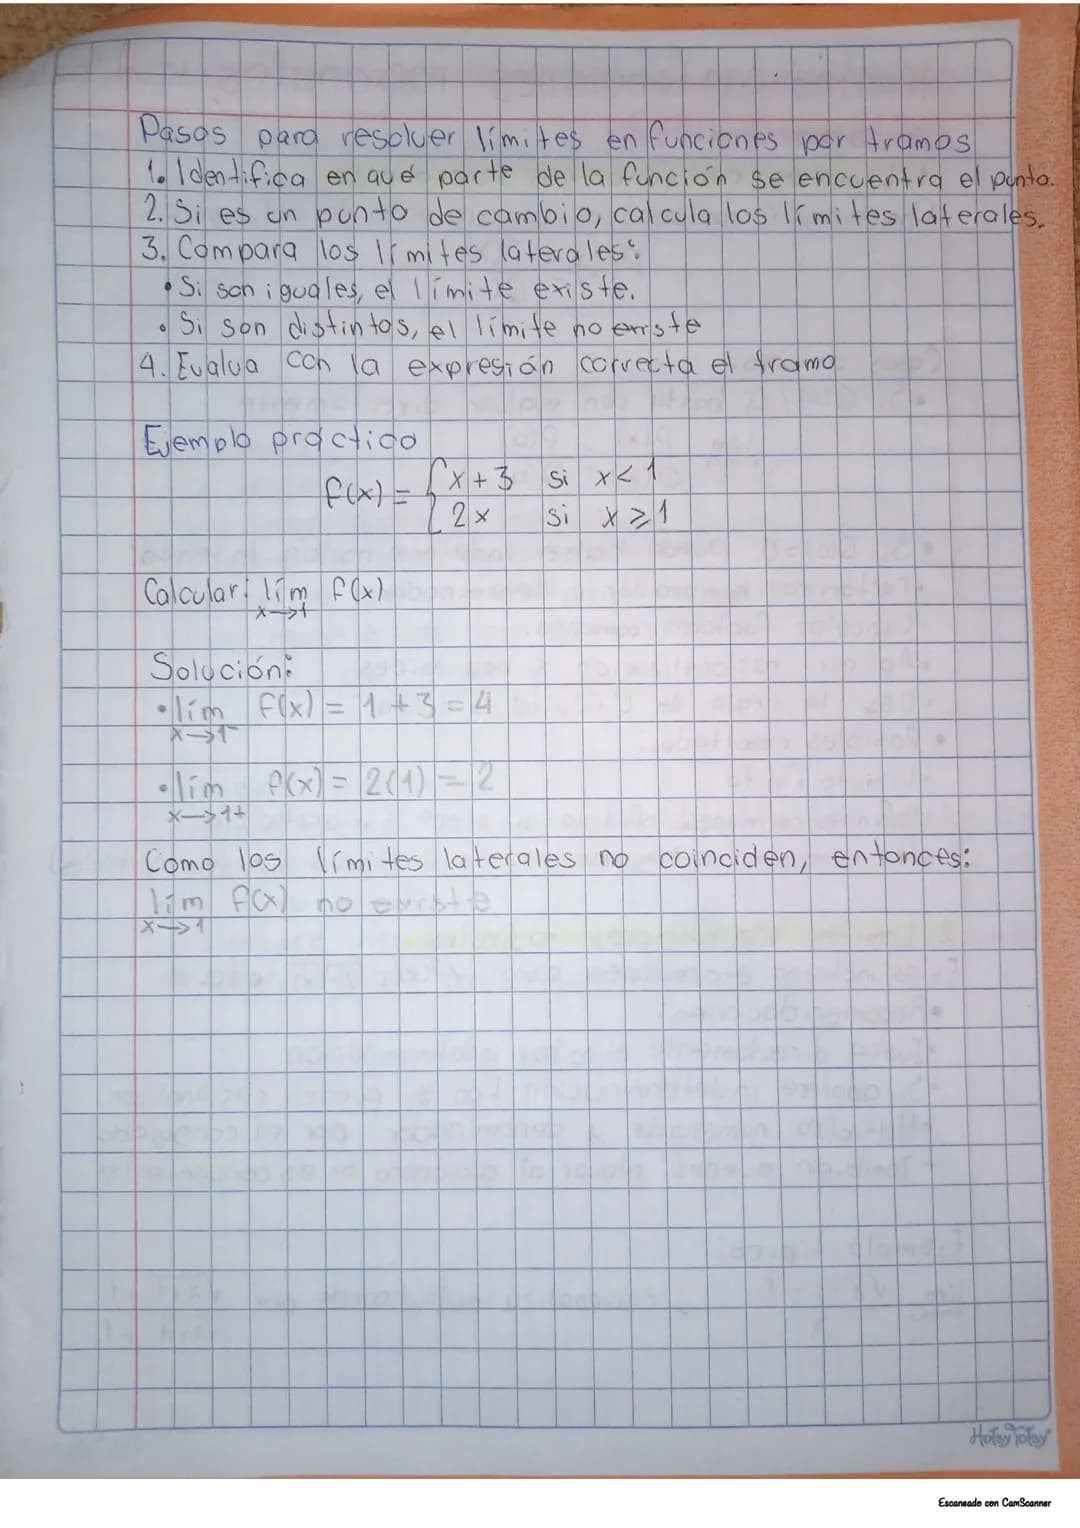 Pasos para resolver límites en funciones por tramos
1. Identifica en qué parte de la función se encuentra el punto.
2. Si es un punto de cambio, calcula los límites laterales.
3. Compara los límites laterales:
• Si son iguales, el límite existe.
• Si son distintos, el límite no existe
4. Evalua con la expresión correcta el tramo
Ejemplo práctico
f(x) = { x + 3 si x < 1
2x si x ⩾ 1
Calcular: lím f(x)
x→1
Solución:
• lím f(x) = 1 + 3 = 4
x→1⁻
• lím f(x) = 2(1) = 2
x→1+
Como los límites laterales no coinciden, entonces:
lím f(x) no existe
x→1
HotsyTotsy
Escaneado con CamScanner